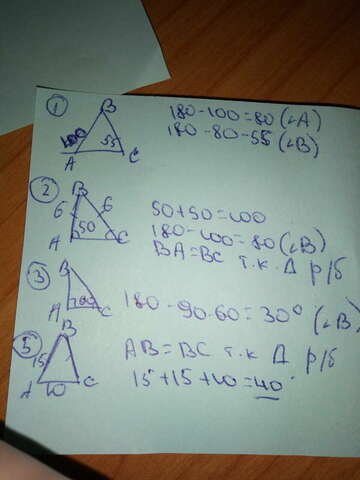 1
B
180-100=80 (∠A)
180-80-55 (∠B)
100
55
A
C
2
B
6
6
50+50=100
50
180-100=80 (∠B)
A
C
BA=BC т.к Δ р/б
3
B
180-90-60=30° (∠B)
60
A
C
5
B
AB=BC т.к Δ р/б
15
15+15+10=40
A
10
C